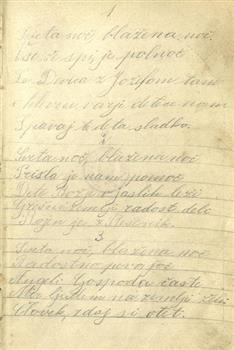 1
Sveta noč, blažena noč
Vse že spi, je polnoč
Le Devica z Jožefom tam
v hlevu varje detice nam
Spavaj dete sladko.
2
Sveta noč, blažena noč
Prišla je nam pomoč
Dete Božje v jaslih leži
radost deli
Rojen je
3
Sveta noč, blažena noč
Radostno pevajoč
Angeli Gospoda časte
Mir ljudem na zemlji
Človek, zdaj si otet.